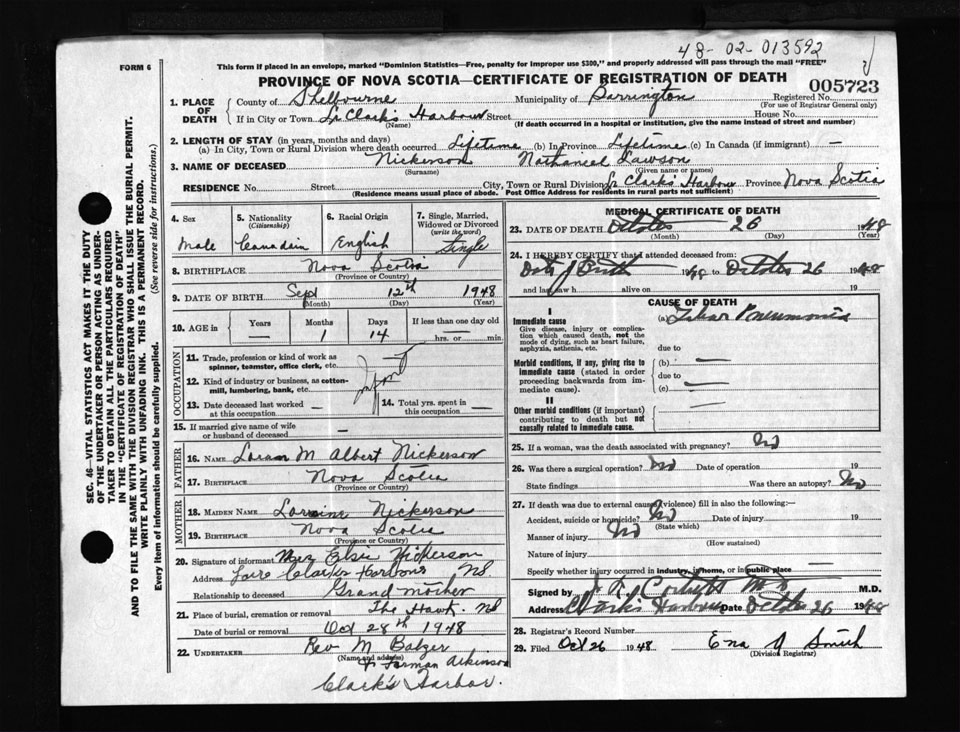 48-02-013592
FORM 6
This form if placed in an envelope, marked "Dominion Statistics—Free, penalty for improper use $300," and properly addressed will pass through the mail "FREE"
PROVINCE OF NOVA SCOTIA—CERTIFICATE OF REGISTRATION OF DEATH
005723
1. PLACE OF DEATH
County of Shelbourne Municipality of Barrington Registered No.
(For use of Registrar General only)
If in City or Town Lr Clarks Harbour Street House No.
(Name) (If death occurred in a hospital or institution, give the name instead of street and number)
2. LENGTH OF STAY (in years, months and days)
(a) In City, Town or Rural Division where death occurred Lifetime (b) In Province Lifetime (c) In Canada (if immigrant) —
3. NAME OF DECEASED Nickerson Nathaniel Lawson
(Surname) (Given name or names)
RESIDENCE No. Street City, Town or Rural Division Lr Clark's Harbour Province Nova Scotia
(Residence means usual place of abode. Post Office Address for residents in rural parts not sufficient)
4. Sex
Male
5. Nationality
(Citizenship)
Canadain
6. Racial Origin
English
7. Single, Married, Widowed or Divorced
(write the word)
Single
8. BIRTHPLACE Nova Scotia
(Province or Country)
9. DATE OF BIRTH Sept 12th 1948
(Month) (Day) (Year)
10. AGE in Years Months Days If less than one day old
— 1 14 hrs. or min.
OCCUPATION
11. Trade, profession or kind of work as spinner, teamster, office clerk, etc.
12. Kind of industry or business, as cotton-mill, lumbering, bank, etc.
Infant
13. Date deceased last worked at this occupation —
14. Total yrs. spent in this occupation —
15. If married give name of wife or husband of deceased —
FATHER
16. Name M Albert Nickerson
17. Birthplace Nova Scotia
(Province or Country)
MOTHER
18. MAIDEN NAME Lorraine Nickerson
19. BIRTHPLACE Nova Scotia
(Province or Country)
20. Signature of informant Mrs Elsie Nickerson
Address Clarks Harbour NS
Relationship to deceased Grand mother
21. Place of burial, cremation or removal The Hawk NS
Date of burial or removal Oct 28th 1948
22. UNDERTAKER Rev M Balzer
(Name and address)
& Forman Atkinson
Clark's Harbor.
MEDICAL CERTIFICATE OF DEATH
23. DATE OF DEATH October 26 1948
(Month) (Day) (Year)
24. I HEREBY CERTIFY that I attended deceased from:
Date of Birth 1948 to October 26 1948
and last saw h alive on 19
CAUSE OF DEATH
I
Immediate cause (a) Lobar Pneumonia
Give disease, injury or complication which caused death, not the mode of dying, such as heart failure, asphyxia, asthenia, etc.
due to
Morbid conditions, if any, giving rise to immediate cause (stated in order proceeding backwards from immediate cause).
(b) —
due to
(c) —
II
Other morbid conditions (if important) contributing to death but not causally related to immediate cause. —
25. If a woman, was the death associated with pregnancy? No
26. Was there a surgical operation? No Date of operation 19
State findings Was there an autopsy? No
27. If death was due to external causes (violence) fill in also the following:—
Accident, suicide or homicide? No Date of injury 19
(State which)
Manner of injury No
(How sustained)
Nature of injury
Specify whether injury occurred in industry, in home, or in public place —
Signed by M.D. M.D.
Address Clark's Harbour Date October 26 1948
28. Registrar's Record Number
29. Filed Oct 26 1948 Ena J Smith
(Division Registrar)
SEC. 46—VITAL STATISTICS ACT MAKES IT THE DUTY
OF THE UNDERTAKER OR PERSON ACTING AS UNDER-
TAKER TO OBTAIN ALL THE PARTICULARS REQUIRED
IN THE "CERTIFICATE OF REGISTRATION OF DEATH"
AND TO FILE THE SAME WITH THE DIVISION REGISTRAR WHO SHALL ISSUE THE BURIAL PERMIT.
WRITE PLAINLY WITH UNFADING INK. THIS IS A PERMANENT RECORD.
Every item of information should be carefully supplied. (See reverse side for instructions.)